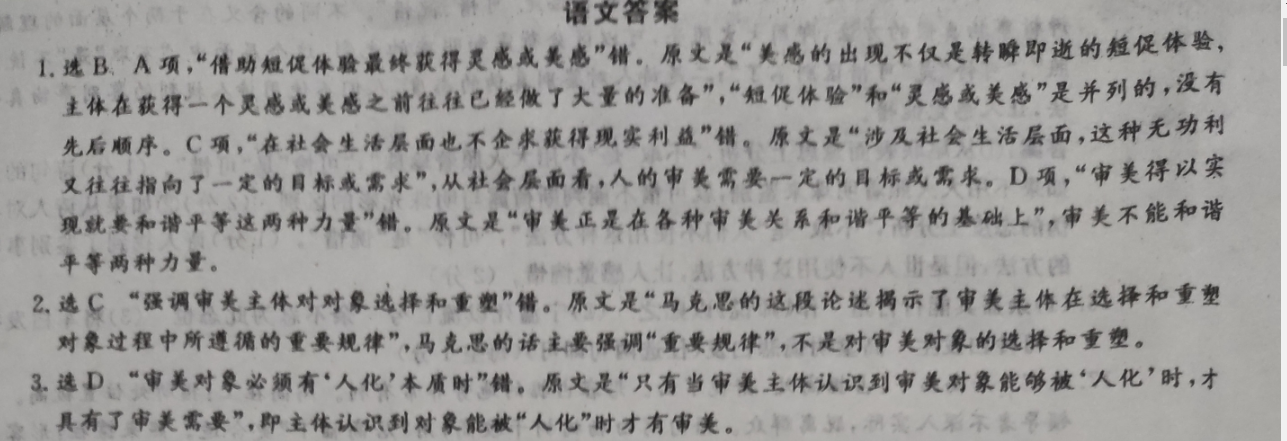 语文答案
1. 选 B  A 项，“借助短促体验最终获得灵感或美感”错。原文是“美感的出现不仅是转瞬即逝的短促体验，
主体在获得一个灵感或美感之前往往已经做了大量的准备”，“短促体验”和“灵感或美感”是并列的，没有
先后顺序。C 项，“在社会生活层面也不企求获得现实利益”错。原文是“涉及社会生活层面，这种无功利
又往往指向了一定的目标或需求”，从社会层面看，人的审美需要一定的目标或需求。D 项，“审美得以实
现就要和谐平等这两种力量”错。原文是“审美正是在各种审美关系和谐平等的基础上”，审美不能和谐
平等两种力量。
2. 选 C  “强调审美主体对对象选择和重塑”错。原文是“马克思的这段论述揭示了审美主体在选择和重塑
对象过程中所遵循的重要规律”，马克思的话主要强调“重要规律”，不是对审美对象的选择和重塑。
3. 选 D  “审美对象必须有‘人化’本质时”错。原文是“只有当审美主体认识到审美对象能够被‘人化’时，才
具有了审美需要”，即主体认识到对象能被“人化”时才有审美。